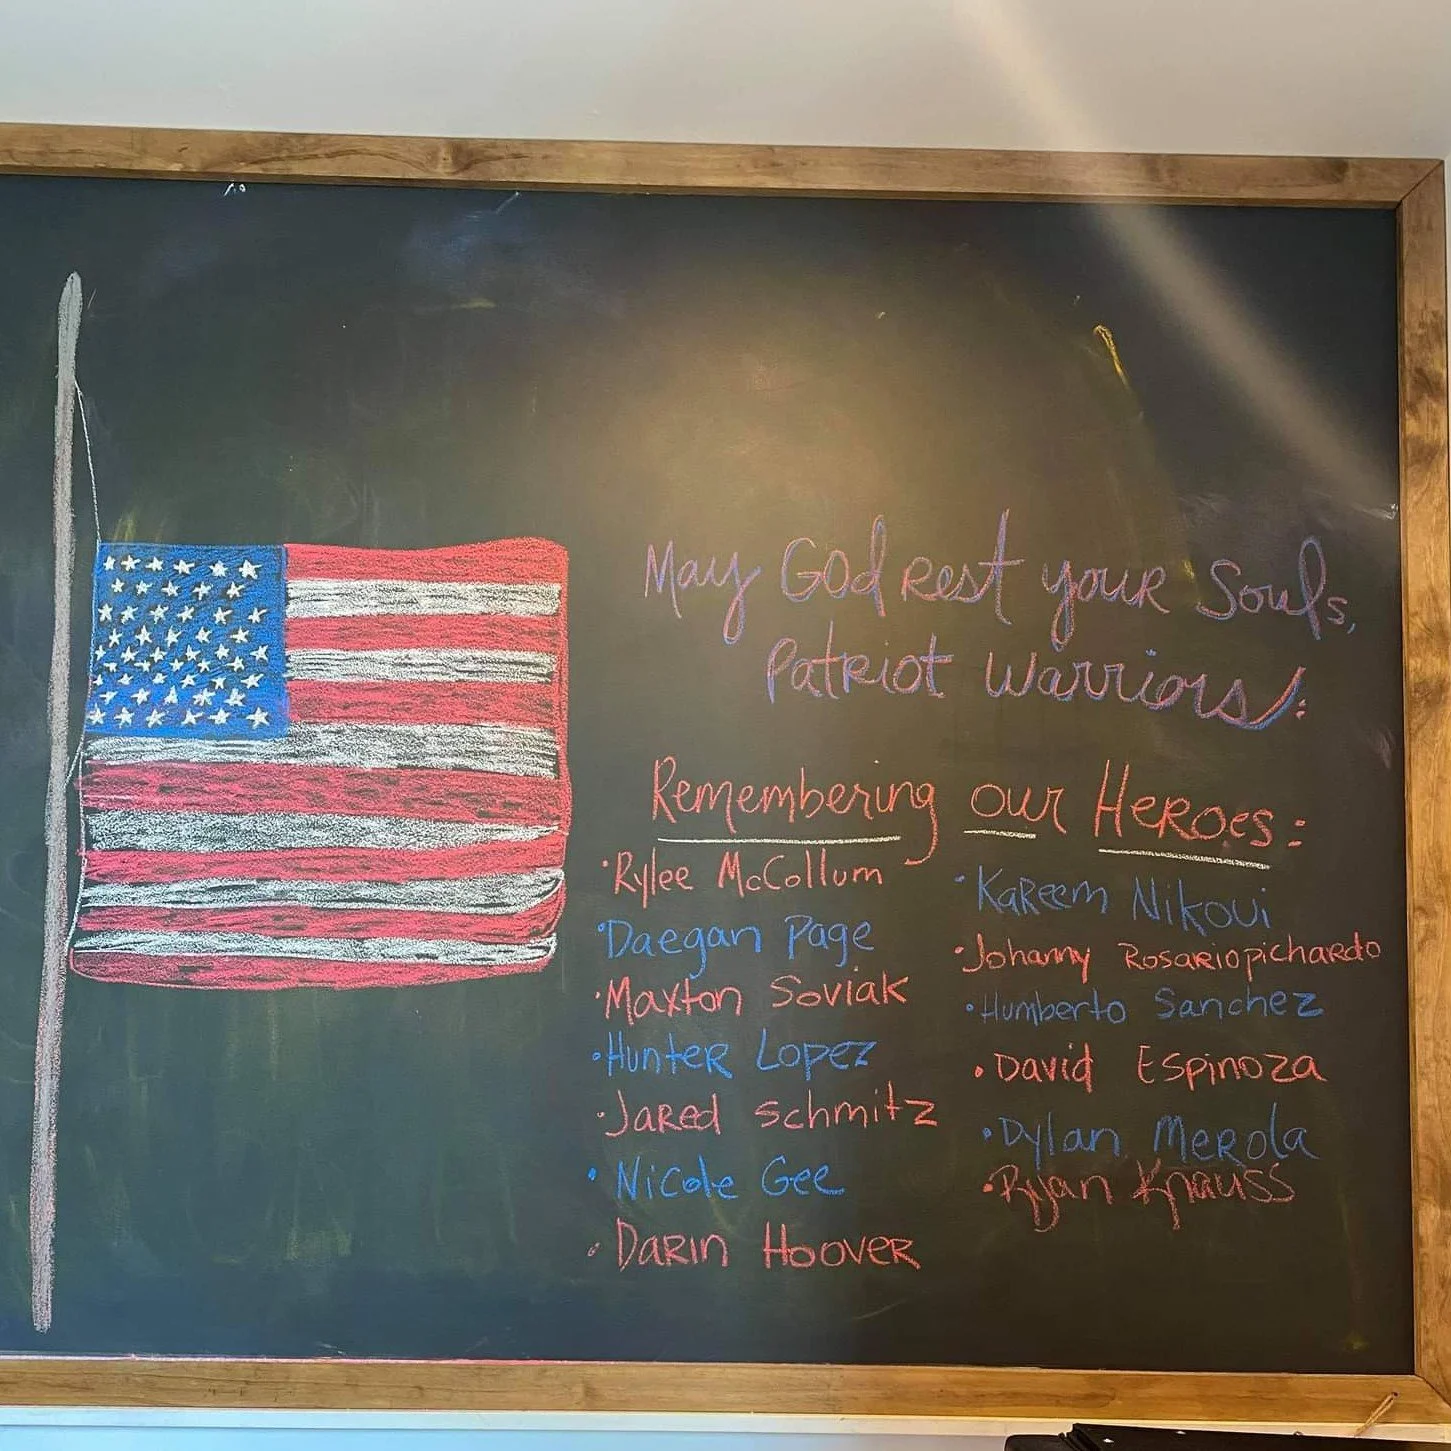 May God rest your Souls,
Patriot Warriors:
Remembering our Heroes:
·Rylee McCollum
·Daegan Page
·Maxton Soviak
·Hunter Lopez
·Jared Schmitz
·Nicole Gee
·Darin Hoover
·Kareem Nikoui
·Johanny Rosariopichardo
·Humberto Sanchez
·David Espinoza
·Dylan Merola
·Ryan Knauss